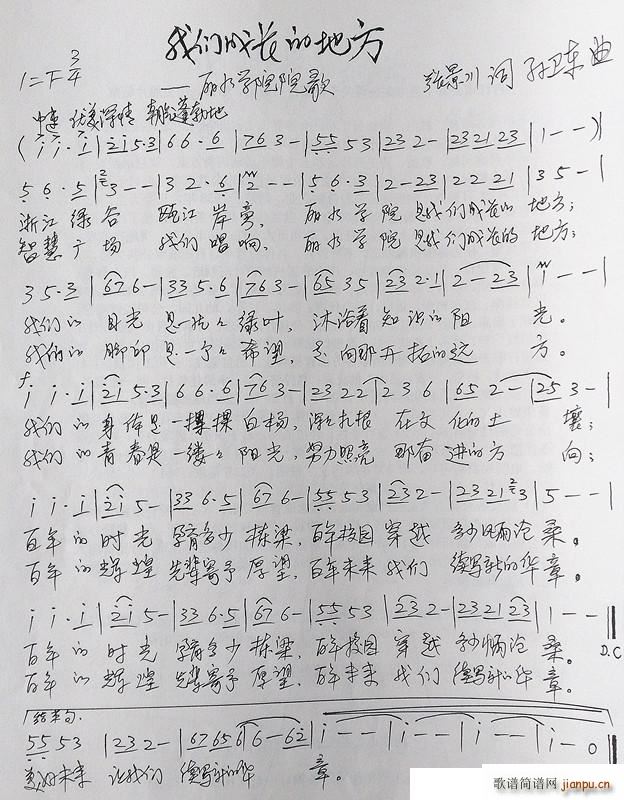 我们成长的地方
1=F 3/4
——丽水学院院歌
张景川 词 孙卫东 曲
中速 优美深情 朝气蓬勃地
( i i· i | 2i 5·3 | 6 6·6 | 76 3 - | 55 53 | 23 2 - | 2321 23 | 1 - - ) |
5 6·5 | 3 - - | 3 2·6 | 2 - - | 5 6·3 | 2 - 23 | 22 21 | 3 5 - |
浙江绿谷 瓯江岸旁, 丽水学院 是我们成长的 地方;
智慧广场 我们唱响, 丽水学院 是我们成长的 地方;
35·3 | 67 6 - | 33 5·6 | 76 3 - | 65 35 | 23 2·1 | 2 - 23 | i - - |
我们的 目光 是一片片 绿叶, 沐浴着 知识的阳 光。
我们的 脚印 是一个个 希望, 走向那开拓的远 方。
f
i i·i | 2i 5·3 | 6 6·6 | 76 3 - | 23 22 | 2 3 6 | 65 2 - | 25 3 - |
我们的身体是一棵棵白杨, 深深扎根 在文化的土 壤;
我们的青春是一缕缕阳光, 努力照亮 那奋进的方 向;
i i·i | 2i 5 - | 33 6·5 | 67 6 - | 55 53 | 23 2 - | 23 21 3 | 5 - - |
百年的时光 孕育多少栋梁, 百年校园 穿越 多少风雨沧桑。
百年的辉煌 先辈寄予厚望, 百年未来 我们 续写新的华章。
i i·i | 2i 5 - | 33 6·5 | 67 6 - | 55 53 | 23 2 - | 2321 23 | 1 - - ‖
百年的时光 孕育多少栋梁, 百年校园 穿越 多少风雨沧桑。
D.C
百年的辉煌 先辈寄予厚望, 百年未来 我们 续写新的华章。
结束句.
55 53 | 23 2 - | 67 656 | 6 - 62 | i - - | i - - | i - - | i - 0 ‖
美好未来 让我们 续写新的华 章。
歌谱简谱网
jianpu.cn